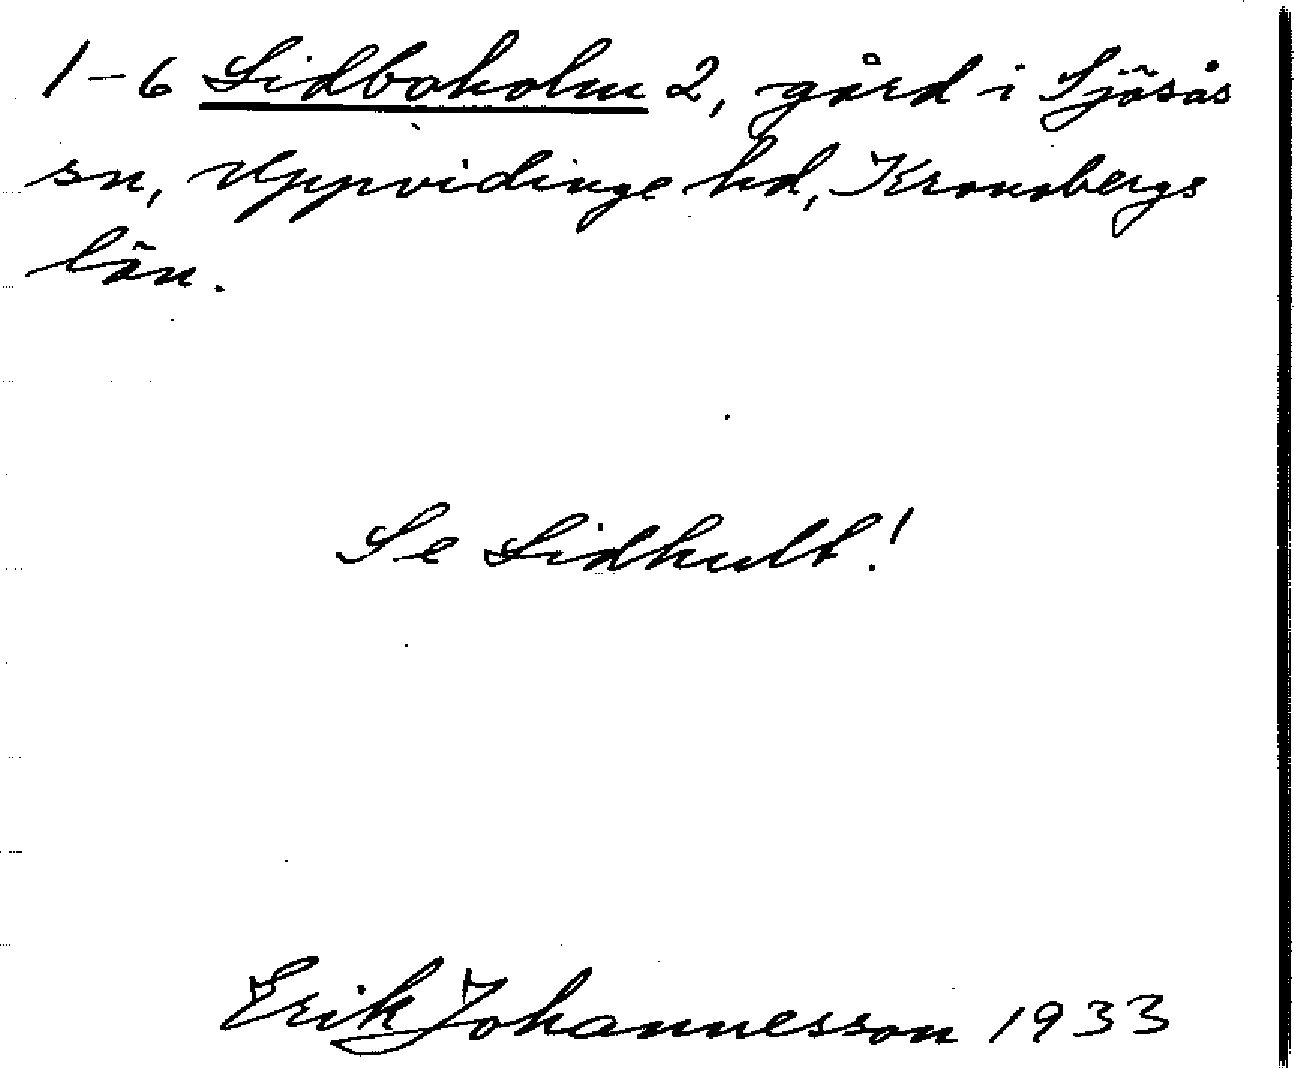 1-6 Lidboholm 2, gård i Sjösås
sn, Uppvidinge hd, Kronobergs
län.
Se Lidhult!
Erik Johannesson 1933